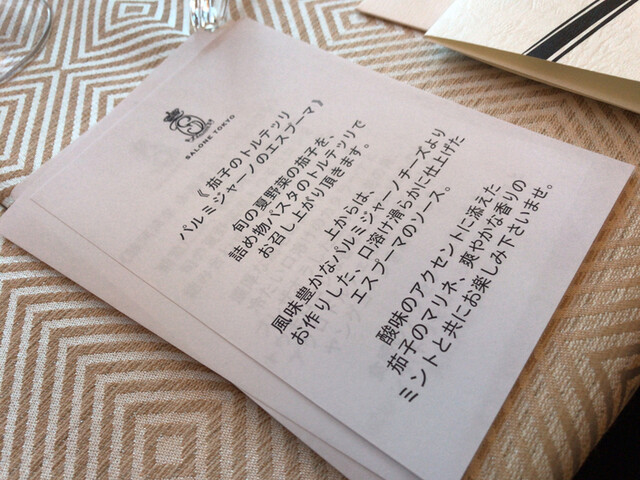 SALONE TOKYO
《 茄子のトルテッリ
パルミジャーノのエスプーマ 》
旬の夏野菜の茄子を、
詰め物パスタのトルテッリで
お召し上がり頂きます。
上からは、
風味豊かなパルミジャーノチーズより
お作りした、口溶け滑らかに仕上げた
エスプーマのソース。
酸味のアクセントに添えた
茄子のマリネ、爽やかな香りの
ミントと共にお楽しみ下さいませ。